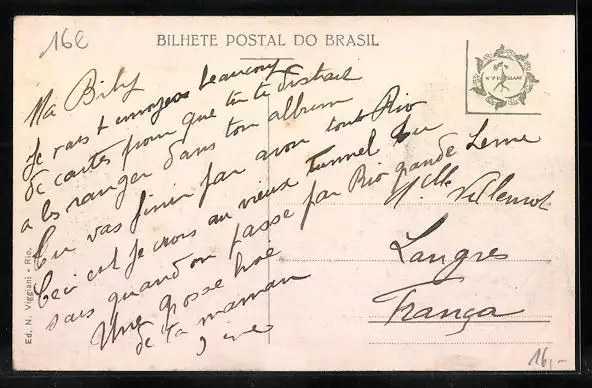 16€
BILHETE POSTAL DO BRASIL
N. VIGGIANI
Ma Biby
Je vais t'envoyer beaucoup
de cartes pour que tu te distrais
a les ranger dans ton album
Tu vas finir par avoir tout Rio
Ceci est je crois au vieux tunnel tu
sais quand on passe par Rio grande Leme
Une grosse
de ta maman
Mlle Villemot
Langres
França
Ed. N. Viggiani - Rio.
16,-